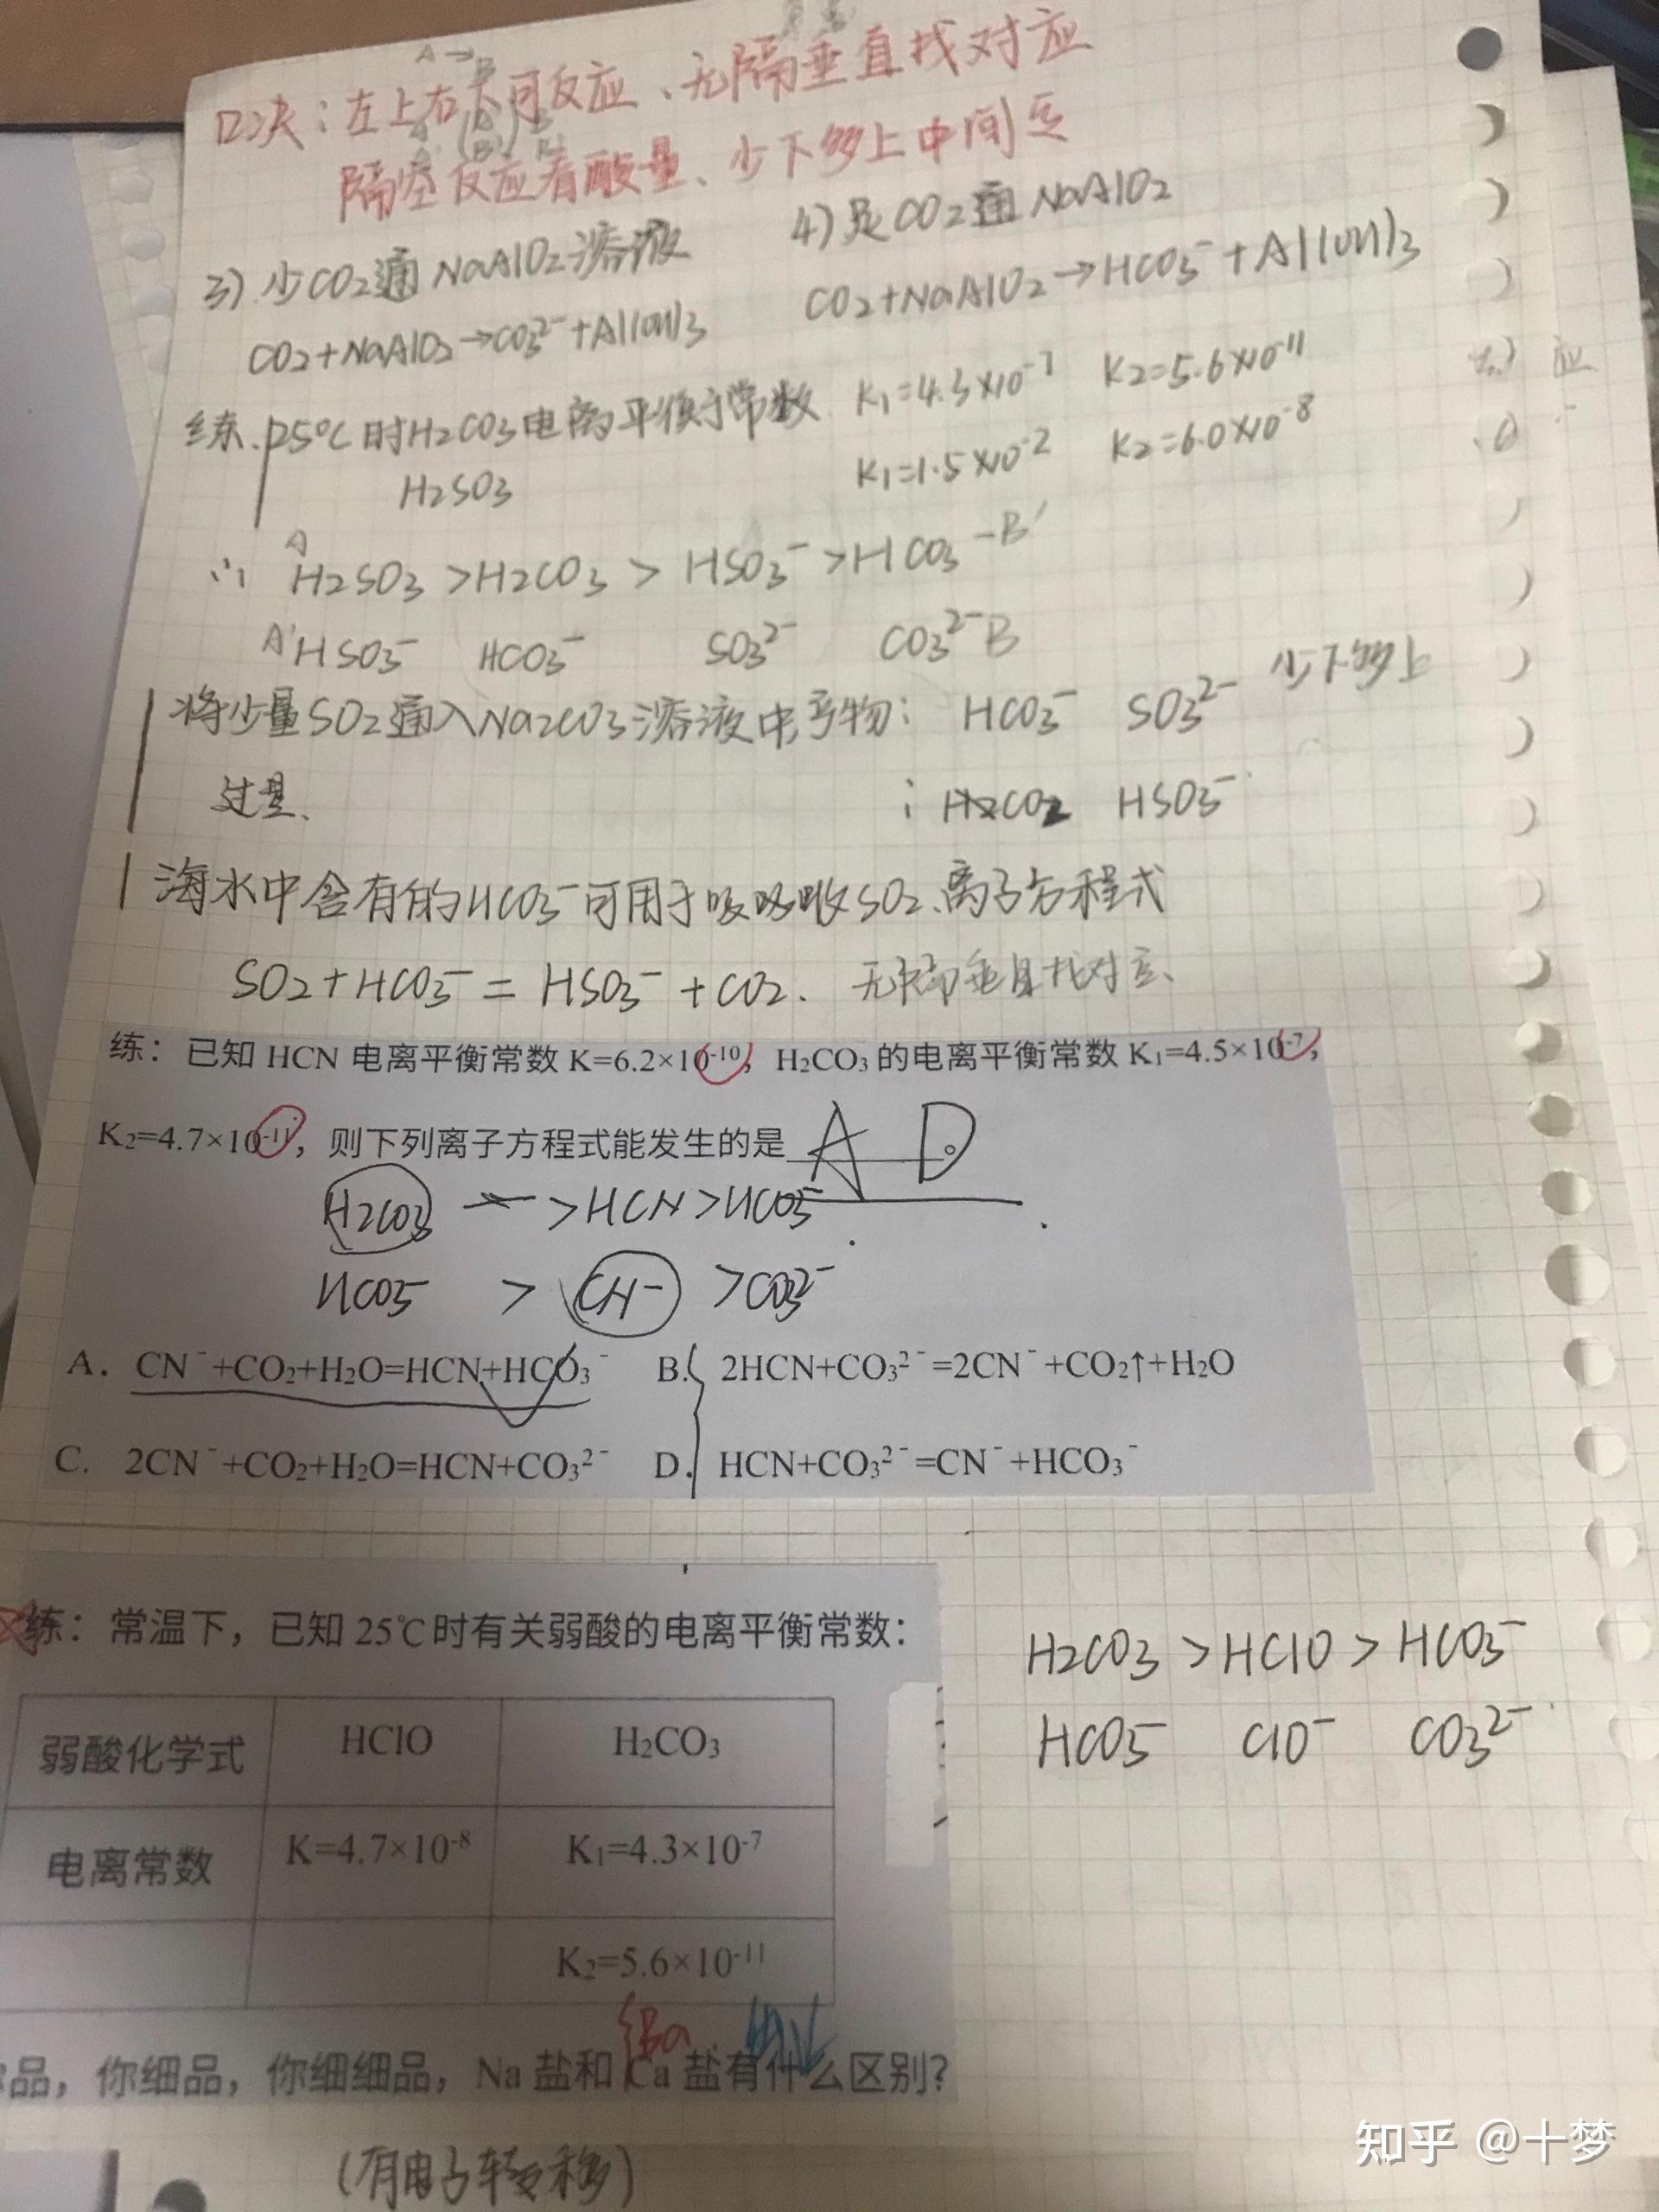 口决：左上右下可反应、无隔垂直找对应
隔空反应看酸量、少下多上中间定
3) 少CO2通NaAlO2溶液
4) 足CO2通NaAlO2
CO2+NaAlO2→CO3²⁻+Al(OH)3
CO2+NaAlO2→HCO3⁻+Al(OH)3
练. 25℃时H2CO3电离平衡于常数 K1=4.3×10⁻⁷ K2=5.6×10⁻¹¹
H2SO3 K1=1.5×10⁻² K2=6.0×10⁻⁸
A
∴ H2SO3 >H2CO3 > HSO3⁻ >HCO3⁻ B'
A' HSO3⁻ HCO3⁻ SO3²⁻ CO3²⁻ B
将少量SO2通入Na2CO3溶液中,产物： HCO3⁻ SO3²⁻ 少下多上
过量、 : CO2 HSO3⁻
海水中含有的HCO3⁻可用于吸收SO2、离子方程式
SO2+HCO3⁻ = HSO3⁻ +CO2. 无隔垂直找对应、
练：已知 HCN 电离平衡常数 K=6.2×10⁻¹⁰，H₂CO₃ 的电离平衡常数 K₁=4.5×10⁻⁷，
K₂=4.7×10⁻¹¹，则下列离子方程式能发生的是 A D
H2CO3 >HCN>HCO3⁻
HCO3⁻ > CN⁻ >CO3²⁻
A. CN⁻+CO₂+H₂O=HCN+HCO₃⁻ B. 2HCN+CO₃²⁻=2CN⁻+CO₂↑+H₂O
C. 2CN⁻+CO₂+H₂O=HCN+CO₃²⁻ D. HCN+CO₃²⁻=CN⁻+HCO₃⁻
练：常温下，已知 25℃时有关弱酸的电离平衡常数：
H2CO3 >HClO > HCO3⁻
HCO3⁻ ClO⁻ CO3²⁻
弱酸化学式 HClO H₂CO₃
电离常数 K=4.7×10⁻⁸ K₁=4.3×10⁻⁷
K₂=5.6×10⁻¹¹
Ba
品，你细品，你细细品，Na 盐和 Ca 盐有什么区别？
(有电子转移)
知乎 @十梦